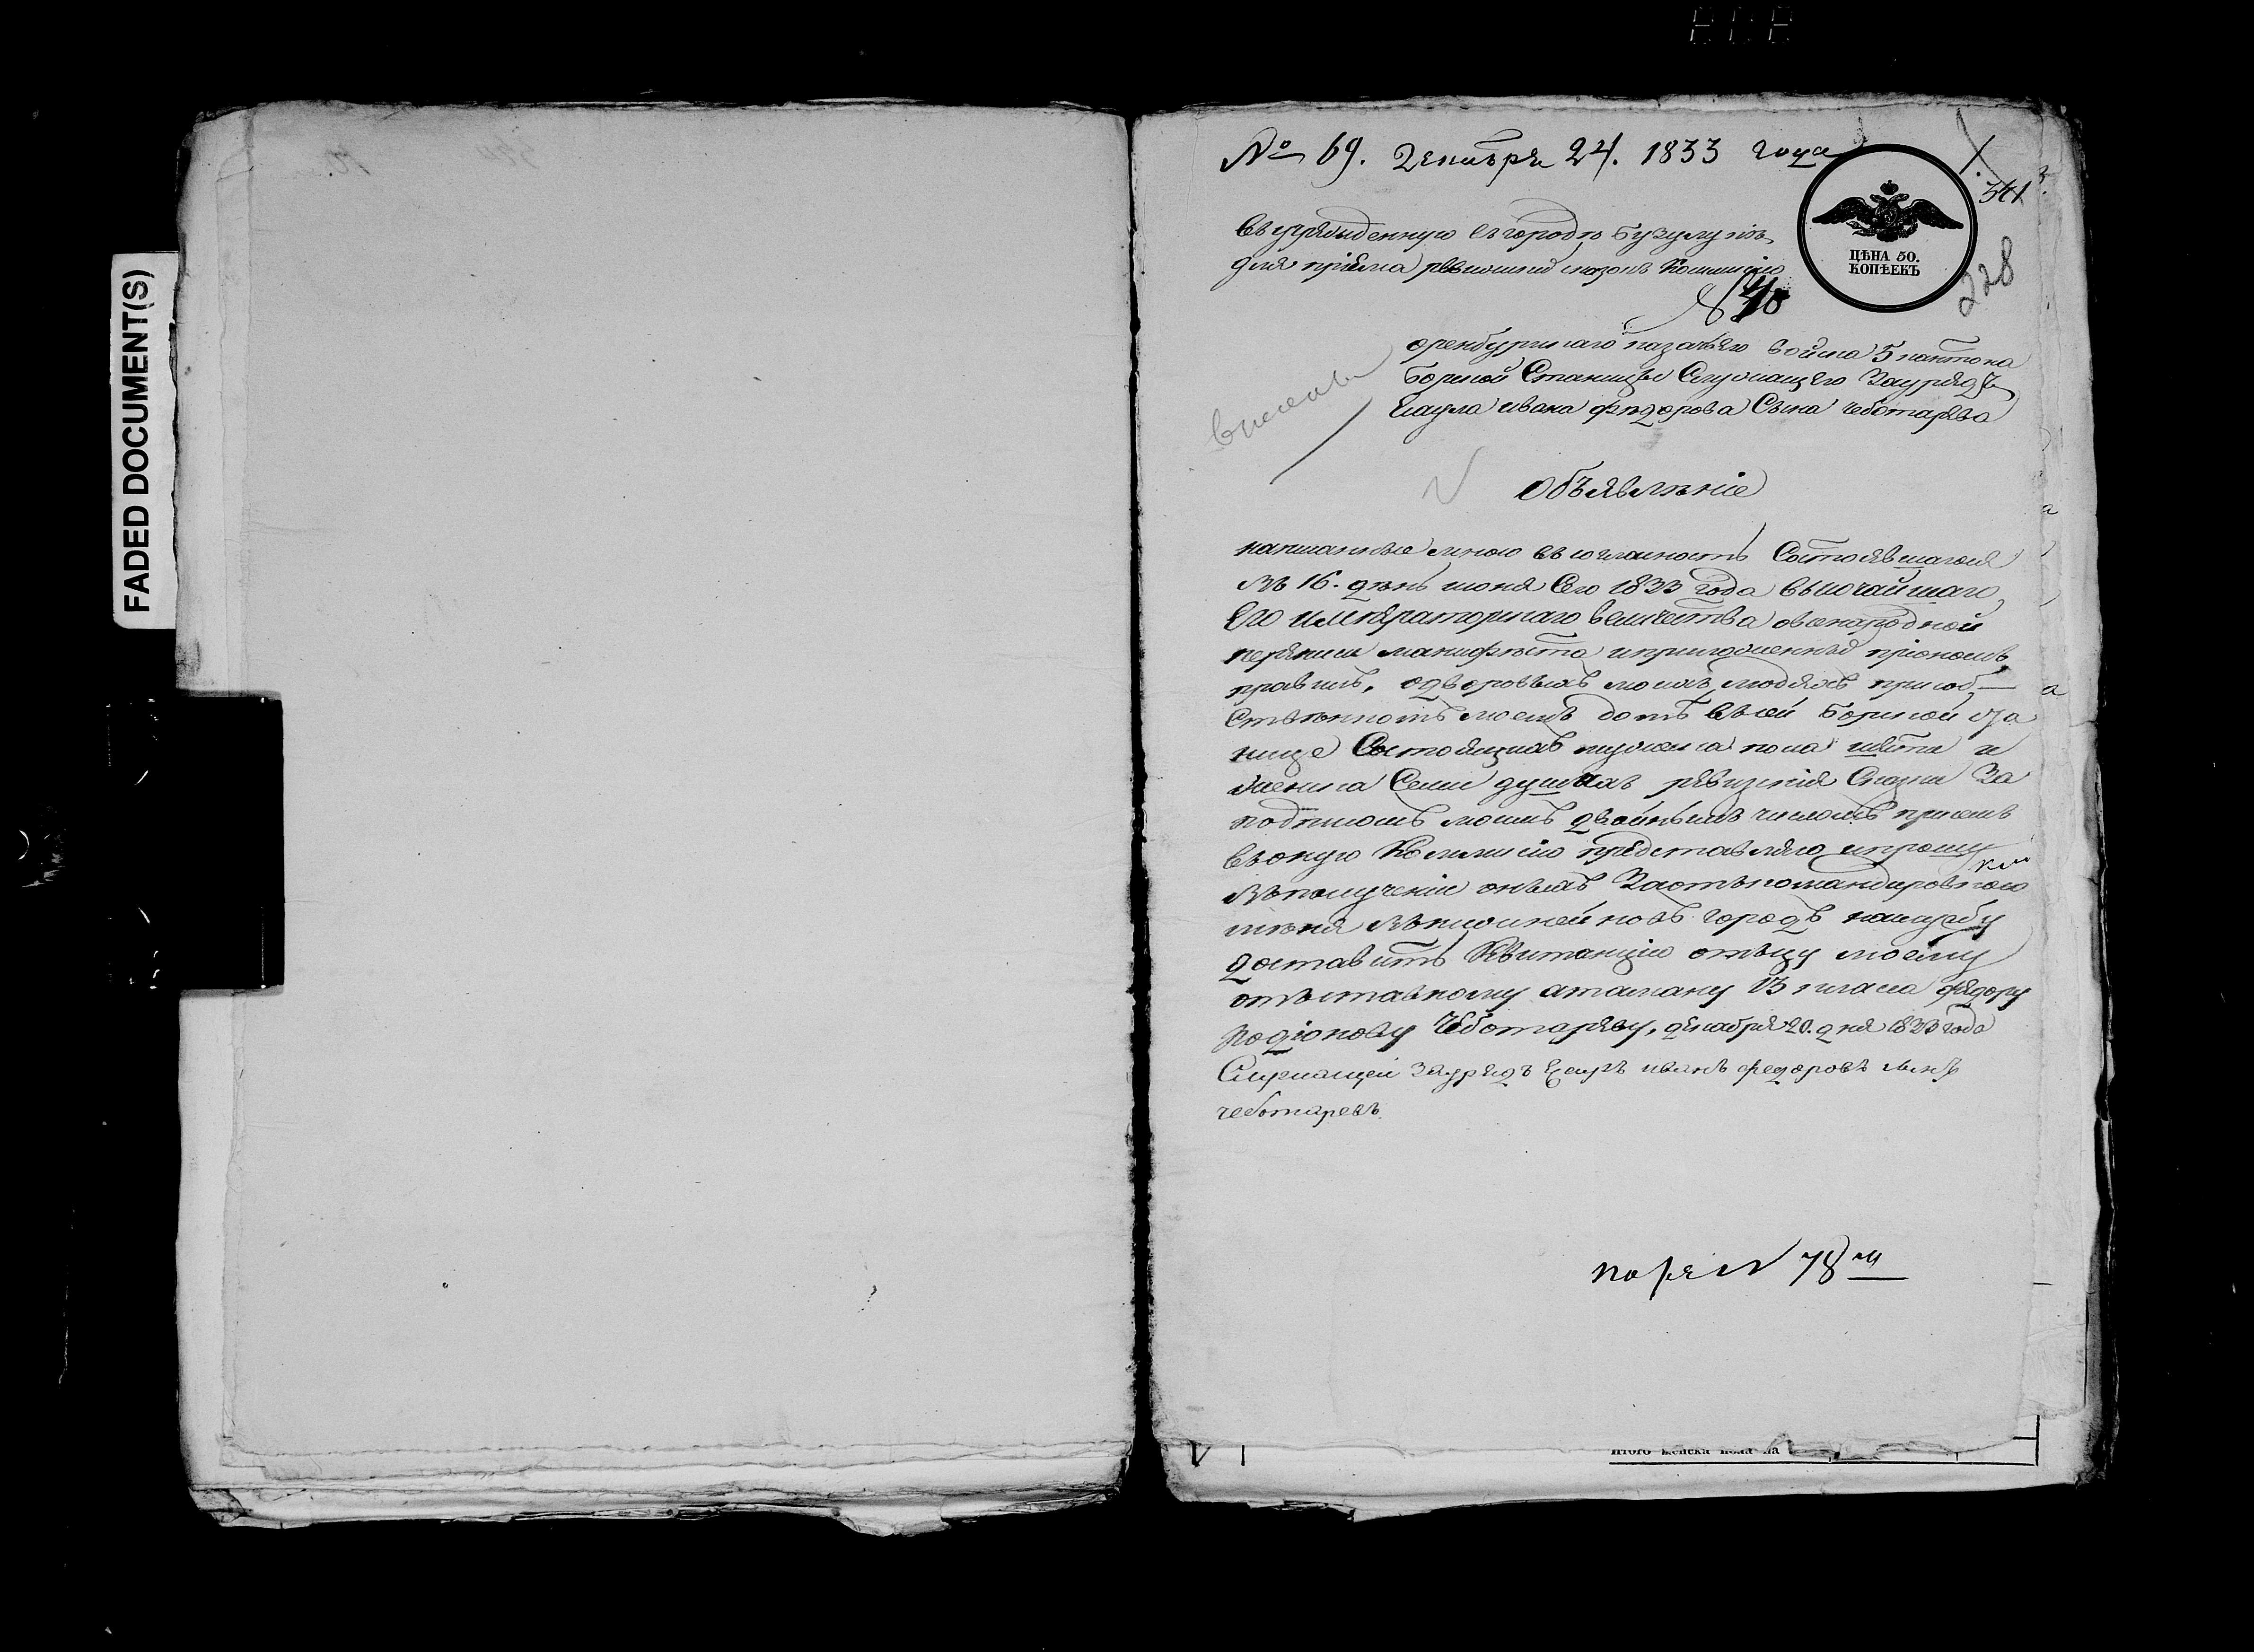 FADED DOCUMENT(S)
№ 69. Декабря 24. 1833 года
341
ЦѢНА 50.
КОПѢЕКЪ
228
Въ учрежденную въ городѣ Бузулукѣ
для пріема ревизскихъ сказокъ Комисію
оренбургскаго казачьяго войска 5 кантона
Борской Станицы Служащего Зауряд
Есаула ивана фѣдорова Сына чеботарева
Объявлѣніе
написанные мною въ Состоявшагося
въ 16. день июня Сего 1833 года высочайшаго
Его императорскаго величества овсенародной
переписи манифѣста приложенныхъ
правилъ, одворовыхъ моихъ людяхъ при
моемъ домѣ всей Борской ста
нице Состоящихъ мужеска пола шести и
женска Семи душахъ ревизскія Сказки За
подписомъ моимъ двойнымъ числомъ при семъ
въ оную Коммисію представляю и прошу
въ получении оныхъ За откомандировкою
меня городъ на службу
доставить Квитанцію отьцу моему
отъставному атаману 13 класса федору
Родіонову Чеботареву, декабря 20. дня 1833 года
Служащей Заурядъ Есаулъ иванъ федоровъ сынъ
чеботаревъ
78
итого женска пола на